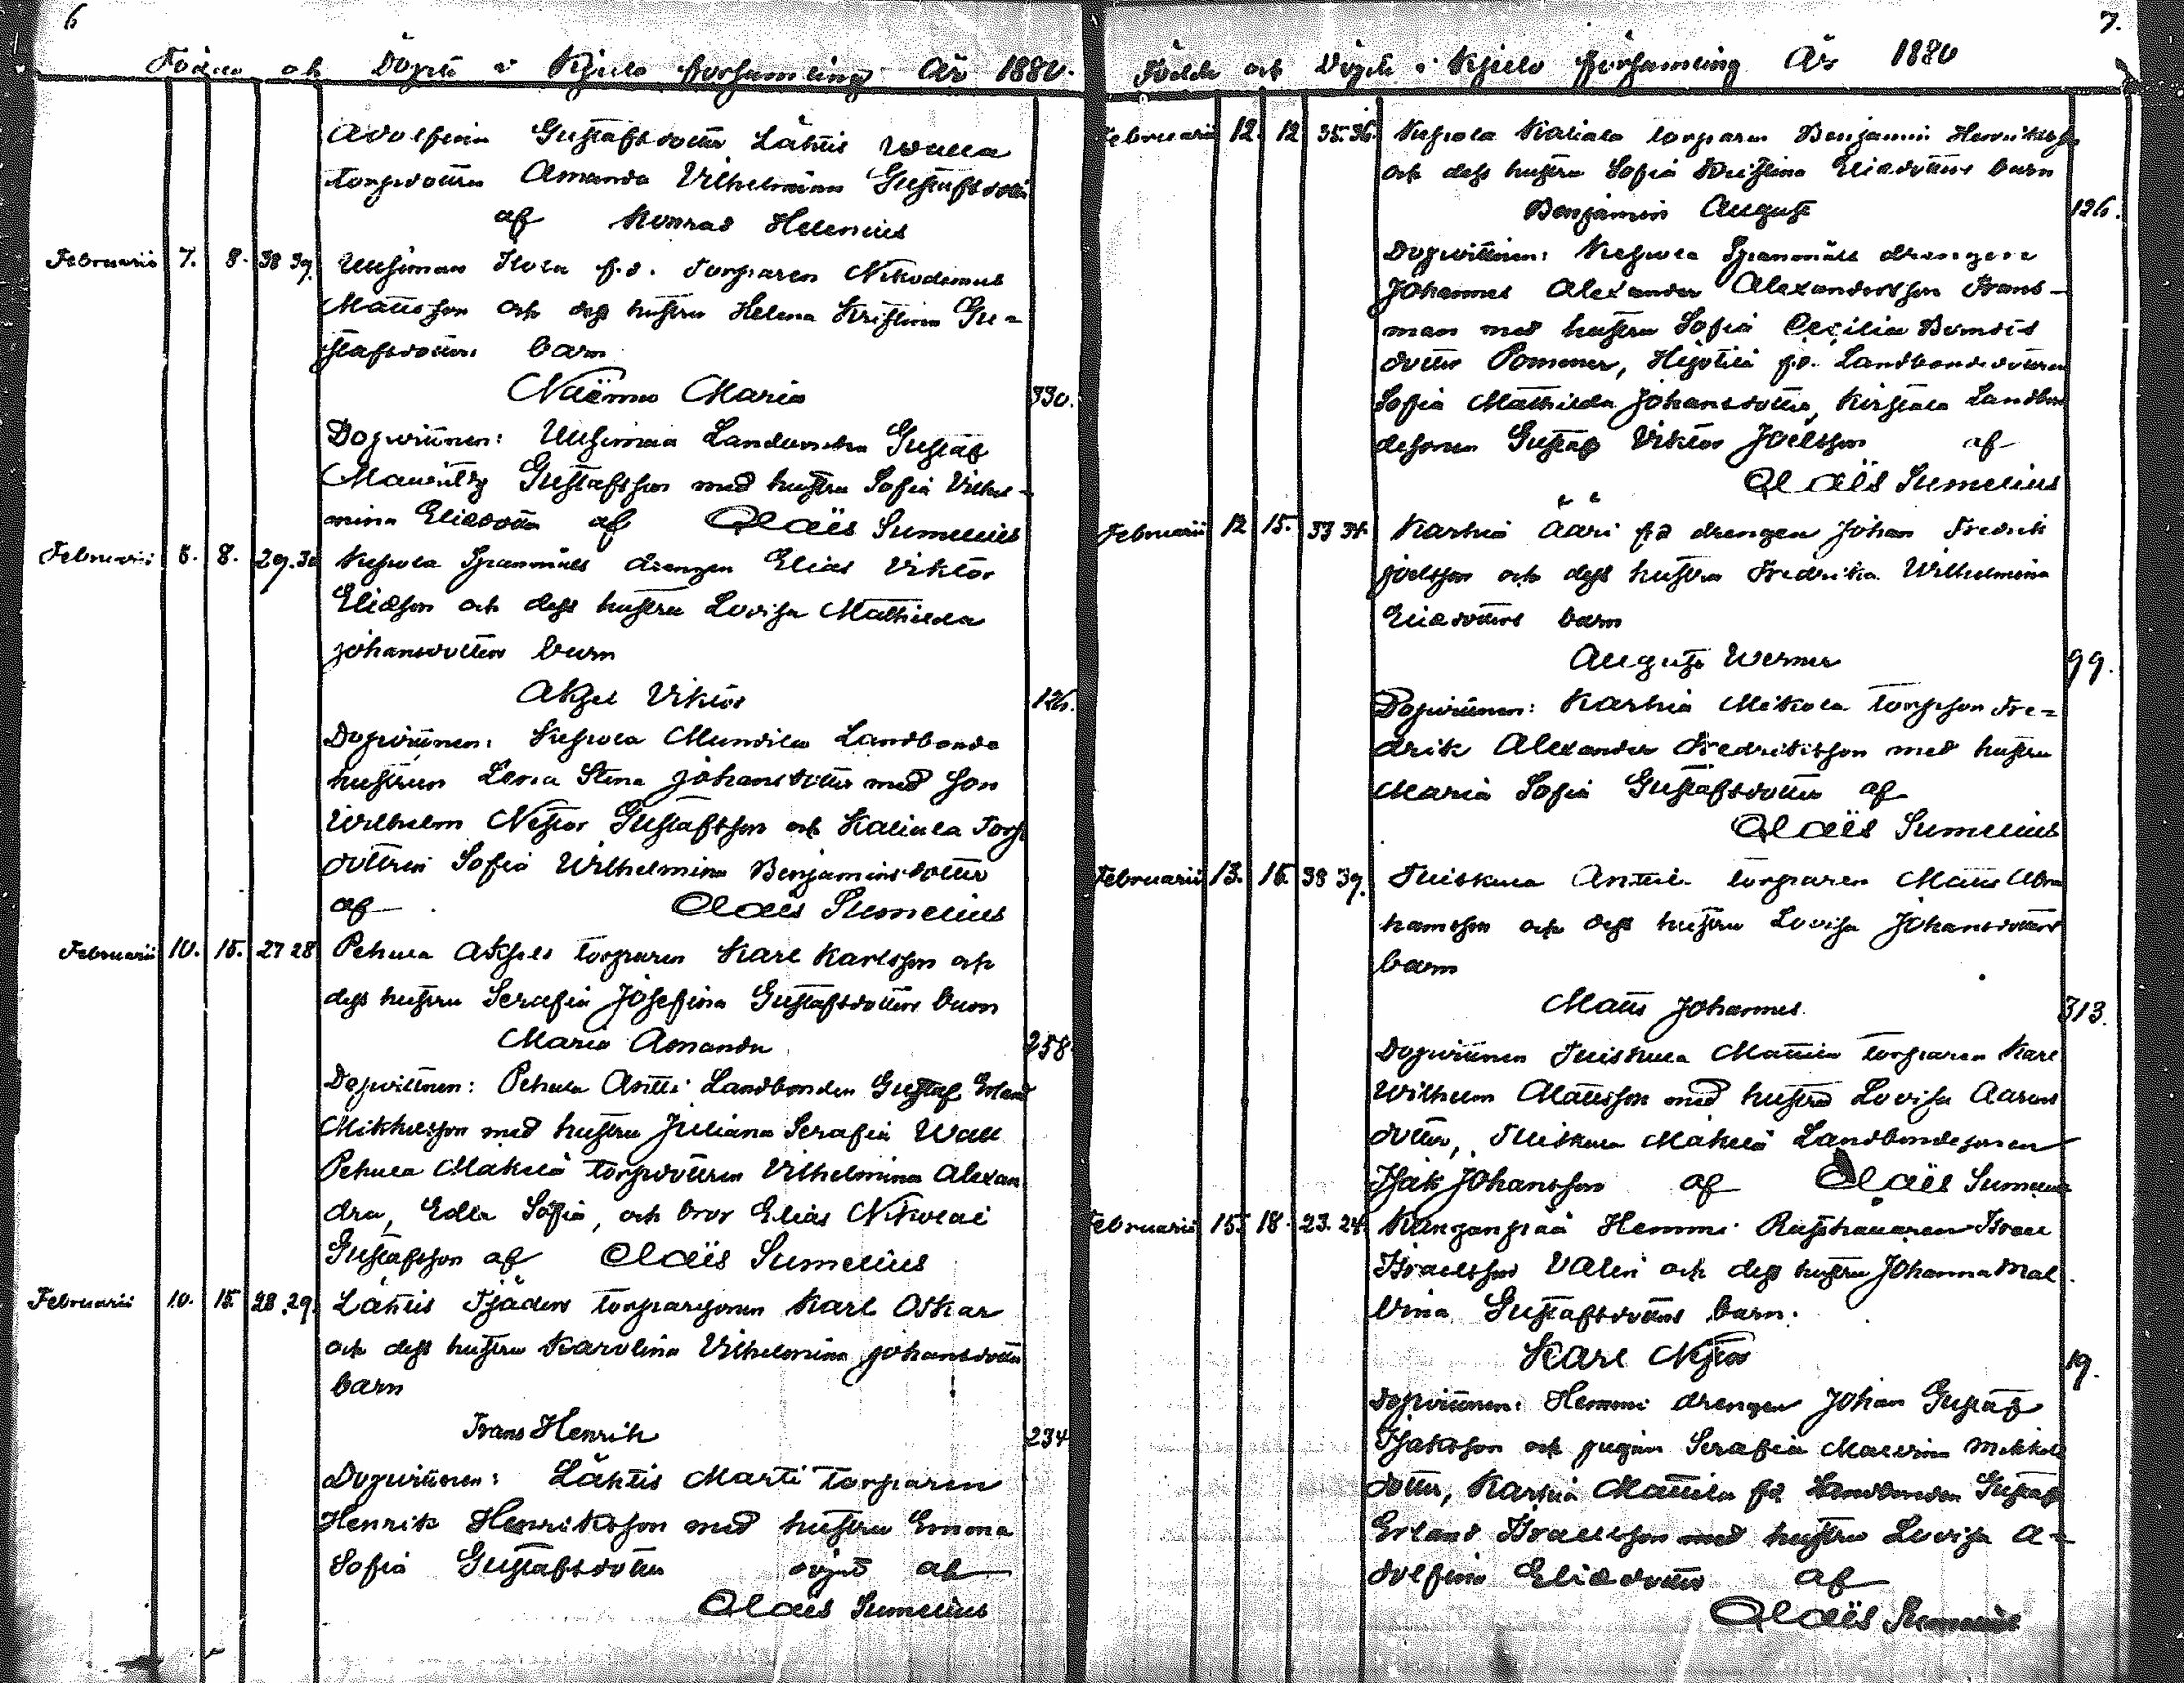 6
Födde och Döpte i Kjulo församling År 1880.
Adolfina Gustafsdotter Lähtis Walla
torpdottren Amanda Vilhelmina Gustafsdotter
af Konrad Helenius
Februarii 7. 8. 38 39. Uusimaa Isola f.d. Torparen Nikodemus
Mattsson och dess hustru Helena Kristina Gu=
stafsdotters barn
Naëmus Maria 330.
Dopvittnen: Uusimaa Gustaf
Mauritz Gustafsson med hustru Sofia Vilhel=
mina Eliedotter af Claës Sumelius
Februarii 8. 29.30 Kepola Spannmäls drengen Elias Viktor
Eliesson och dess hustru Lovisa Mathilda
Johansdotters barn
Aksel Viktor 126.
Dopvittnen: Kepola Mundila Landbonde
hustrun Lena Stina Johansdotter med son
Wilhelm Nestor Gustafsson och Kaliala Torp
dottren Sofia Wilhelmina Benjaminsdotter
af Claës Sumelius
Februarii 10. 15. 27 28 Pehula Aksels torparen Karl Karlsson och
dess hustru Serafia Josefina Gustafsdotters barn
Maria Amanda 258
Dopvittnen: Pehula Antti Landbonden Gustaf Erland
Mikkelsson med hustru Juliana Serafia Wall
Pehula Mäkelä torpdottren Vilhelmina Alexan
dra, Edla Sofia, och bror Elias Nikolai
Gustafsson af Claës Sumelius
Februarii 10. 15. 28,29. Lähtis Tjäders torparsonen Karl Oskar
och dess hustru Karolina Vilhelmina Johansdotters
barn
Frans Henrik 234
Dopvittnen: Lähtis Martti Torparen
Henrik Henriksson med hustru Emma
Sofia Gustafsdotter döpt af
Claës Sumelius
7.
Födde och Döpte i Kjulo församling År 1880
Februarii 12. 12 35.36. Kepola Kaliala torparen Benjamin Henriksson
och dess hustru Sofia Kristina Eliedotters barn
Benjamin August 126.
Dopvittnen: Kepola Spannmäls drengen
Johannes Alexander Alexandersson Frans=
man med hustru Sofia Cecilia
dotter Pommer, f.d. Landbondedottren
Sofia Mathilda Johansdotter, Landbon
desonen Gustaf Viktor Joelsson af
Claës Sumelius
Februarii 12 15. 33 34. Karhia Ääri f.d drengen Johan Fredrik
Joelsson och dess hustru Fredrika Wilhelmina
Eliedotters barn
August Werner 99.
Dopvittnen: Karhia Mikola torpson Fre=
drik Alexander Fredriksson med hustru
Maria Sofia Gustafsdotter af
Claës Sumelius
Februarii 13. 15. 38 39. Tuiskula Anttila torparen Matts Abra
hamsson och dess hustru Lovisa Johansdotters
barn
Matts Johannes. 313.
Dopvittnen Tuiskula Mattila torparen Karl
Wilhelm Mattsson med hustru Lovisa Aarons
dotter, Tuiskula Mäkelä Landbondesonen
Isak Johansson af Claës Sumelius
Februarii 15. 18. 23. 24. Kunganpää Hemmi Rusthållaren Israel
Israelsson Valin och dess hustru Johanna Mal
vina Gustafsdotters barn.
Karl Nestor 19.
Dopvittnen: Hemmi drengen Johan Gustaf
Isaksson och pigan Serafia Malvina Mikkels
dotter, Karhia Mattila f.d Landbonden Gustaf
Erland Israelsson med hustru Lovisa A=
dolfina Eliedotter af
Claës Sumelius